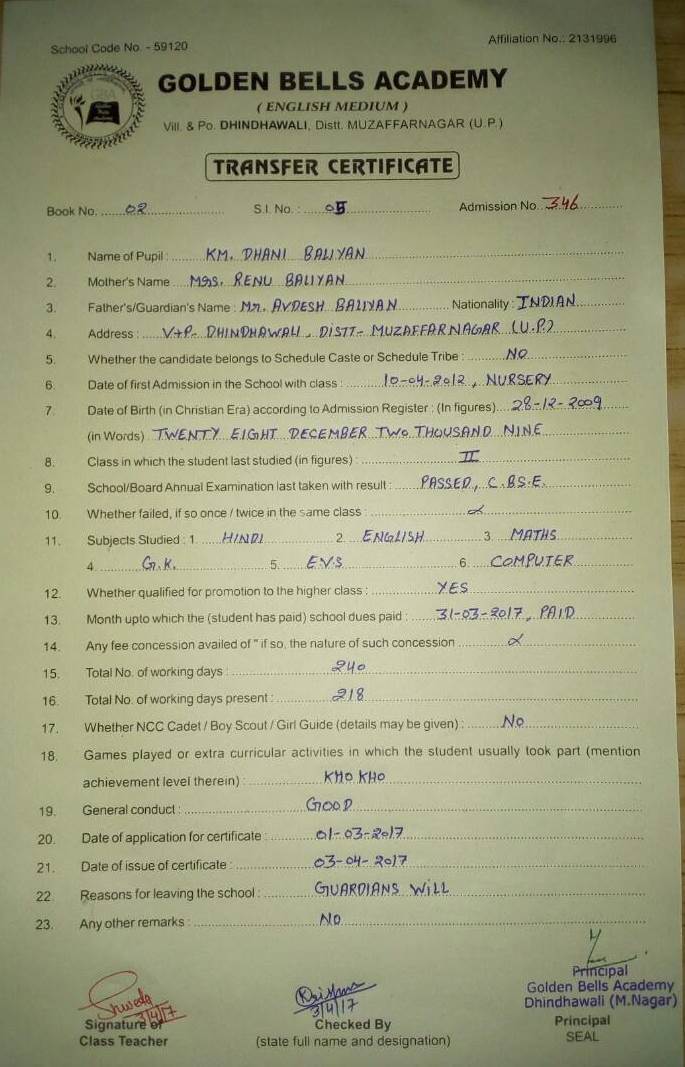 School Code No. - 59120
Affiliation No.: 2131996
GBA
GOLDEN BELLS ACADEMY
( ENGLISH MEDIUM )
Vill. & Po. DHINDHAWALI, Distt. MUZAFFARNAGAR (U.P.)
TRANSFER CERTIFICATE
Book No. 02 S.I. No. : 05 Admission No. 346
1. Name of Pupil : KM. DHANI BALIYAN
2. Mother's Name Mrs. RENU BALIYAN
3. Father's/Guardian's Name : Mr. AVDESH BALIYAN Nationality : INDIAN
4. Address : V+P- DHINDHAWALI, DISTT- MUZAFFARNAGAR (U.P.)
5. Whether the candidate belongs to Schedule Caste or Schedule Tribe : NO
6. Date of first Admission in the School with class : 10-04-2012, NURSERY
7. Date of Birth (in Christian Era) according to Admission Register : (In figures) 28-12-2009
(in Words) TWENTY EIGHT DECEMBER TWO THOUSAND NINE
8. Class in which the student last studied (in figures) : II
9. School/Board Annual Examination last taken with result : PASSED, C.B.S.E.
10. Whether failed, if so once / twice in the same class :
11. Subjects Studied : 1. HINDI 2. ENGLISH 3. MATHS
4. G.K. 5. E.V.S 6. COMPUTER
12. Whether qualified for promotion to the higher class : YES
13. Month upto which the (student has paid) school dues paid : 31-03-2017, PAID
14. Any fee concession availed of " if so, the nature of such concession
15. Total No. of working days : 240
16. Total No. of working days present : 218
17. Whether NCC Cadet / Boy Scout / Girl Guide (details may be given) : No
18. Games played or extra curricular activities in which the student usually took part (mention
achievement level therein) : KHO KHO
19. General conduct : GOOD
20. Date of application for certificate : 01-03-2017
21. Date of issue of certificate : 03-04-2017
22. Reasons for leaving the school : GUARDIANS WILL
23. Any other remarks : NO
Shweta
3/4/17
Signature of
Class Teacher
Krishna
3/4/17
Checked By
(state full name and designation)
Principal
Golden Bells Academy
Dhindhawali (M.Nagar)
Principal
SEAL